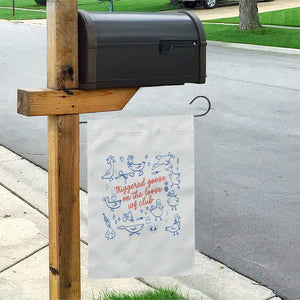 triggered goose
on the loose
wf club